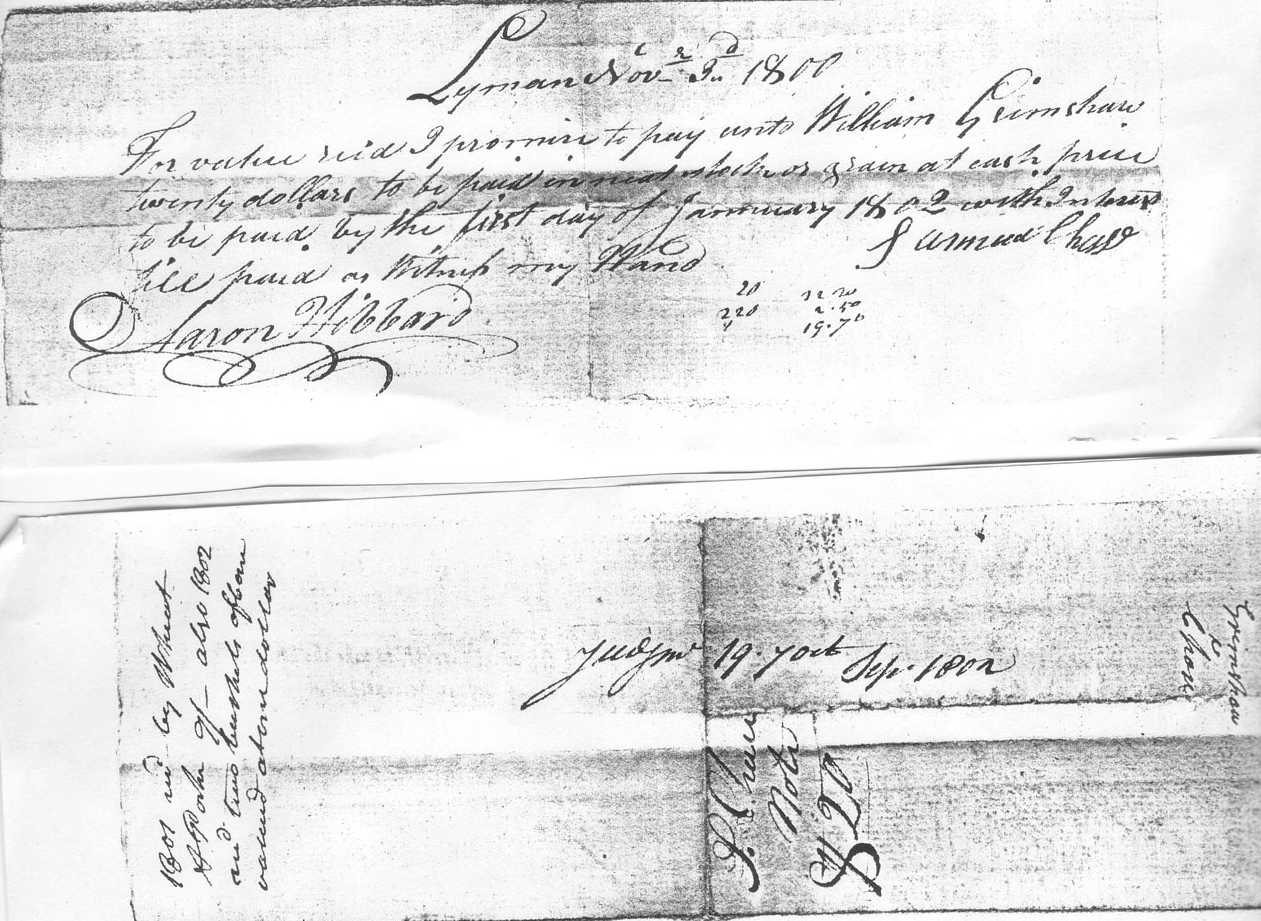 Lyman Novr 3d 1800
For value rcid I promise to pay unto William Grimshaw
twenty dollars to be paid in neat stock or grain at cash price
to be paid by the first day of Jannuary 1802 with Interest
till paid as Witness my Hand
Samuel Chase
Aaron Hibbard
20 22.20
220 2.50
19.70
1801 rcd by Wheat
& Pork
also 1802
rcd two bushels of corn
valued at one dollar
Judgmt 19.70 ct Sepr 1802
S. Chase
Note
$20
Grimshaw
&
Chase